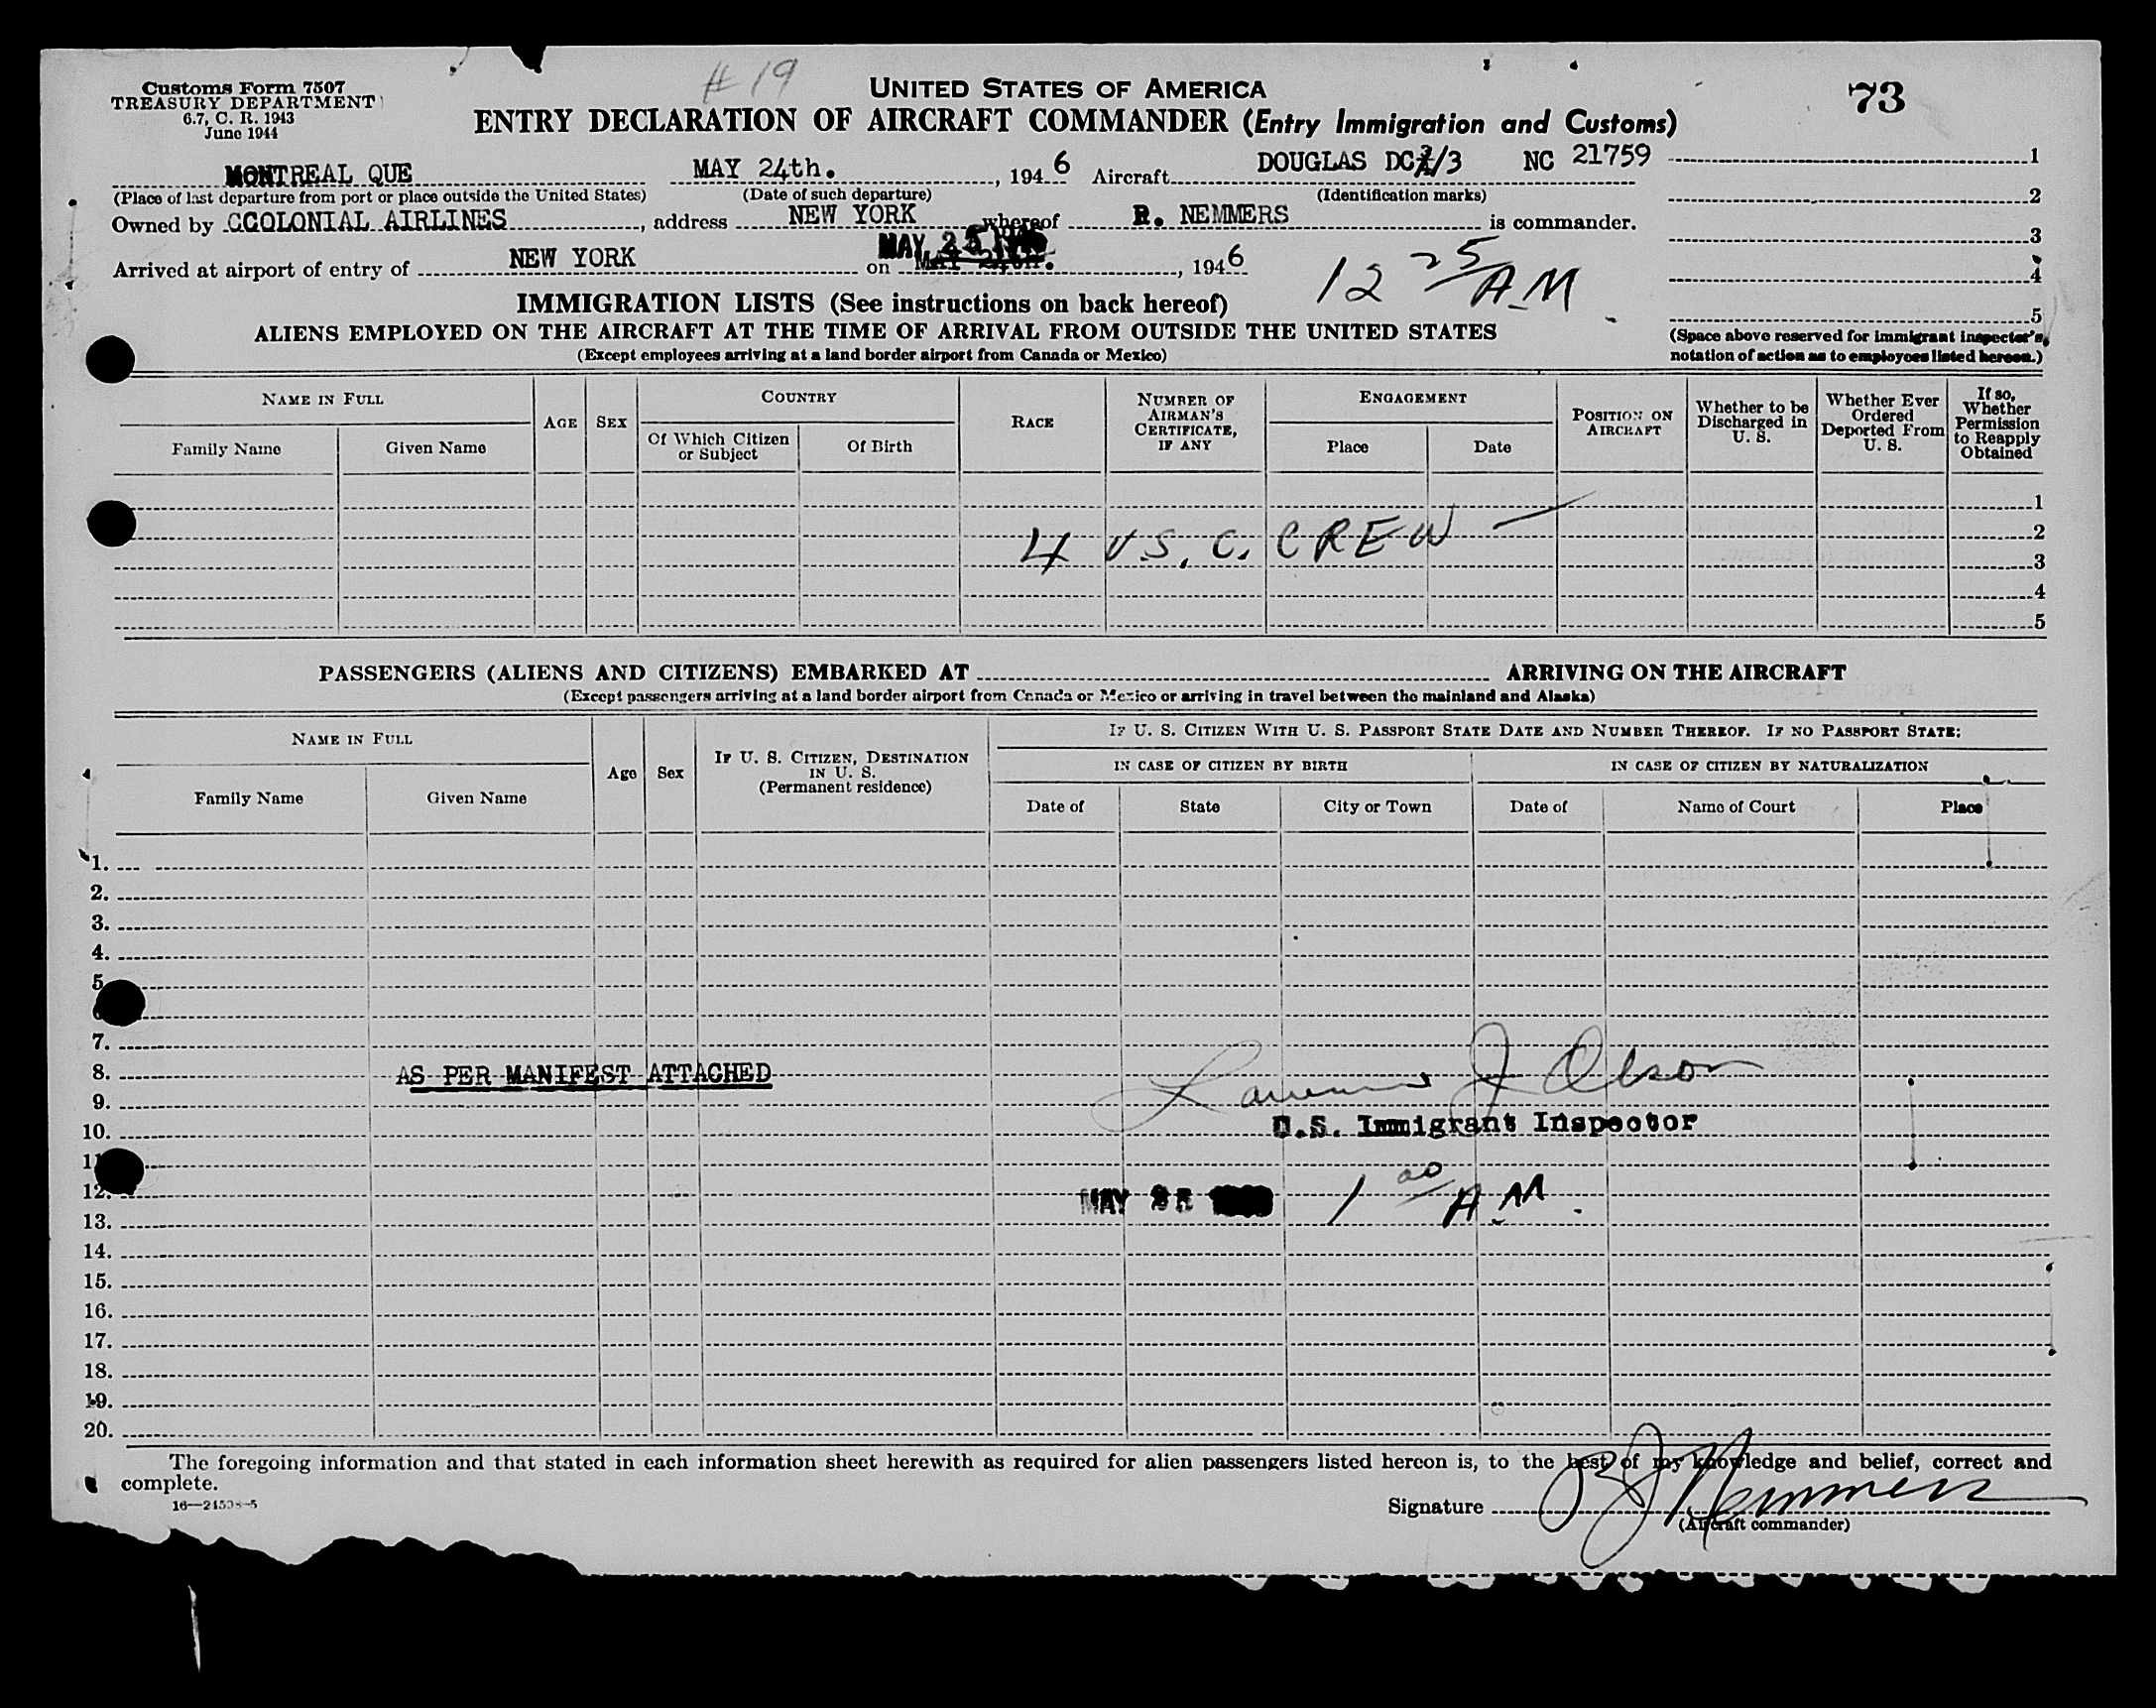 Customs Form 7507
TREASURY DEPARTMENT
6.7, C. R. 1943
June 1944
# 19
UNITED STATES OF AMERICA
ENTRY DECLARATION OF AIRCRAFT COMMANDER (Entry Immigration and Customs)
73
MONTREAL QUE MAY 24th., 1946 Aircraft DOUGLAS DC /3 NC 21759
(Place of last departure from port or place outside the United States) (Date of such departure) (Identification marks)
Owned by CCOLONIAL AIRLINES, address NEW YORK whereof R. NEMMERS is commander.
Arrived at airport of entry of NEW YORK on MAY 25, 1946
12 25 A.M.
1
2
3
4
5
(Space above reserved for immigrant inspector's notation of action as to employees listed hereon.)
IMMIGRATION LISTS (See instructions on back hereof)
ALIENS EMPLOYED ON THE AIRCRAFT AT THE TIME OF ARRIVAL FROM OUTSIDE THE UNITED STATES
(Except employees arriving at a land border airport from Canada or Mexico)
NAME IN FULL
Family Name Given Name
AGE SEX
COUNTRY
Of Which Citizen or Subject Of Birth
RACE
NUMBER OF AIRMAN'S CERTIFICATE, IF ANY
ENGAGEMENT
Place Date
POSITION ON AIRCRAFT
Whether to be Discharged in U. S.
Whether Ever Ordered Deported From U. S.
If so, Whether Permission to Reapply Obtained
1
2
4 U.S. C. CREW —
3
4
5
PASSENGERS (ALIENS AND CITIZENS) EMBARKED AT ARRIVING ON THE AIRCRAFT
(Except passengers arriving at a land border airport from Canada or Mexico or arriving in travel between the mainland and Alaska)
NAME IN FULL
Family Name Given Name
Age Sex
IF U. S. CITIZEN, DESTINATION IN U. S.
(Permanent residence)
IF U. S. CITIZEN WITH U. S. PASSPORT STATE DATE AND NUMBER THEREOF. IF NO PASSPORT STATE:
IN CASE OF CITIZEN BY BIRTH IN CASE OF CITIZEN BY NATURALIZATION
Date of State City or Town Date of Name of Court Place
1.
2.
3.
4.
5.
7.
8. AS PER MANIFEST ATTACHED
J Olson
9.
10. U.S. Immigrant Inspector
11
12. MAY 25 1 00 A.M.
13.
14.
15.
16.
17.
18.
19.
20.
The foregoing information and that stated in each information sheet herewith as required for alien passengers listed hereon is, to the best of my knowledge and belief, correct and
complete.
16—24508-5
Signature R J Nemmers
(Aircraft commander)